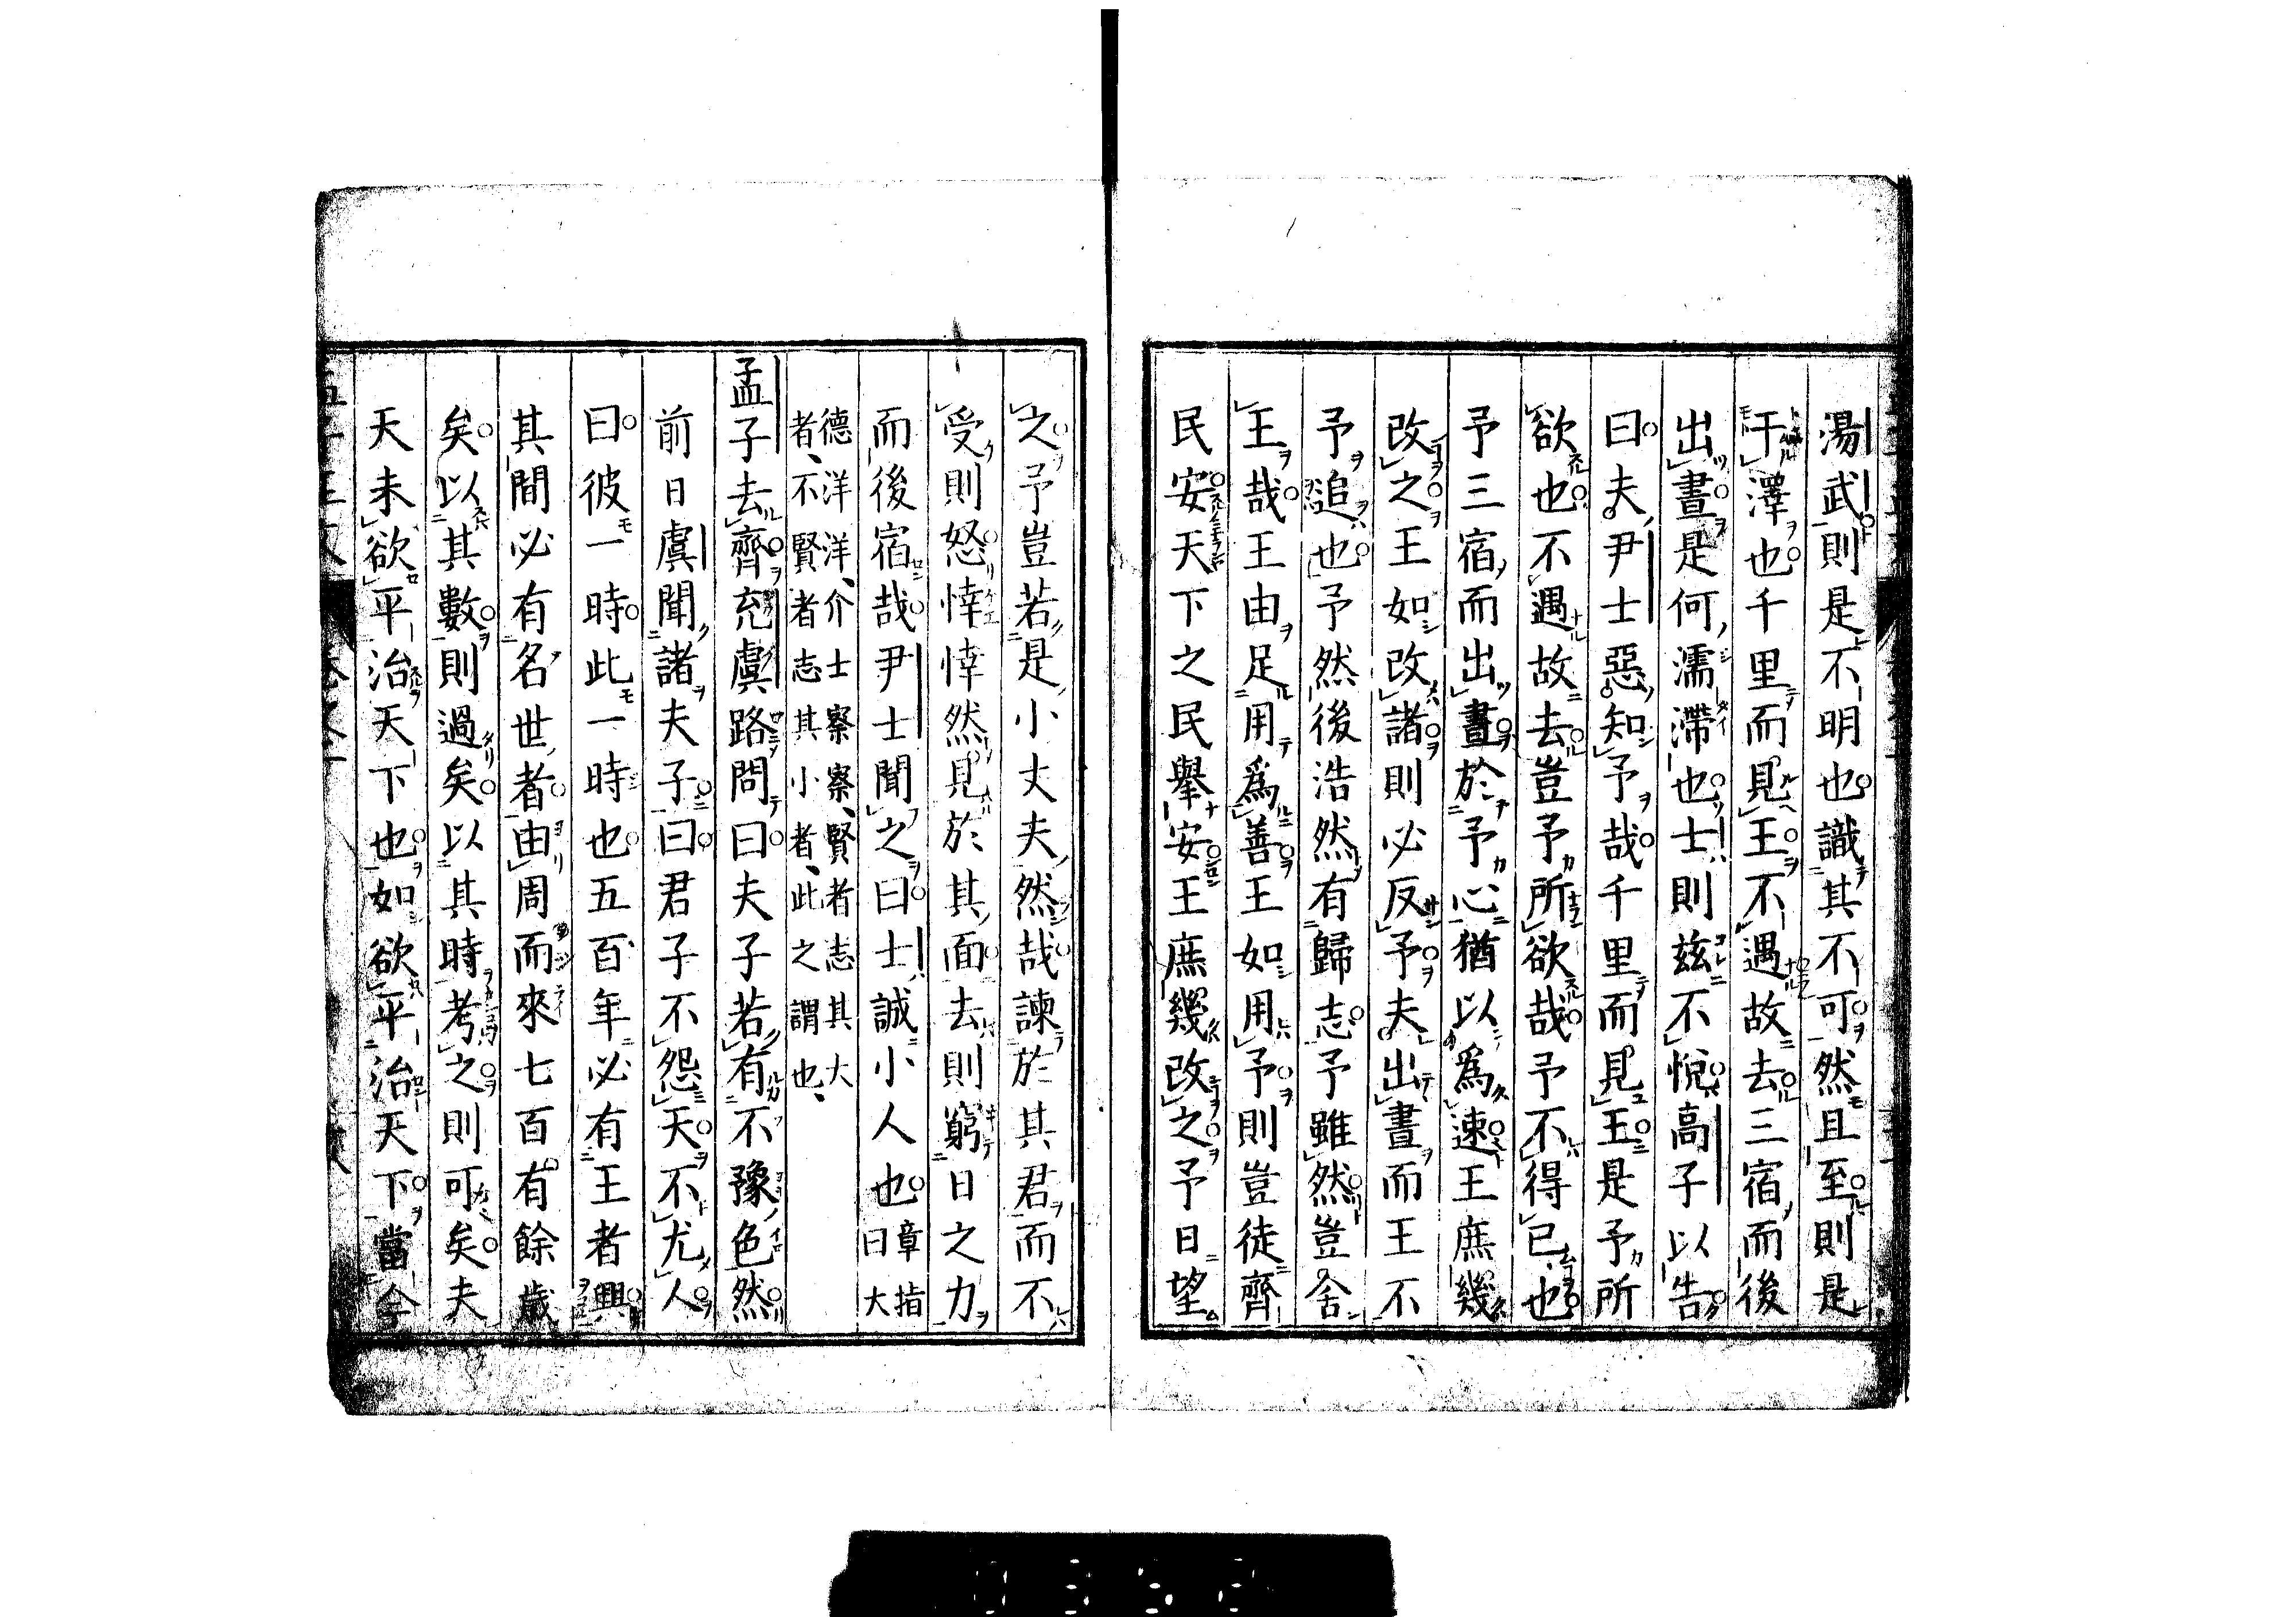 湯武則是不明也識其不可然且至則是
于澤也千里而見王不遇故去三宿而後
出晝是何濡滯也士則茲不悅高子以告
曰夫尹士惡知予哉千里而見王是予所
欲也不遇故去豈予所欲哉予不得已也
予三宿而出晝於予心猶以為速王庶幾
改之王如改諸則必反予夫出晝而王不
予追也予然後浩然有歸志予雖然豈舍
王哉王由足用為善王如用予則豈徒齊
民安天下之民舉安王庶幾改之予日望
之予豈若是小丈夫然哉諫於其君而不
受則怒悻悻然見於其面去則窮日之力
而後宿哉尹士聞之曰士誠小人也章指曰大
德洋洋、介士察察、賢者志其大
者、不賢者志其小者、此之謂也、
孟子去齊充虞路問曰夫子若有不豫色然
前日虞聞諸夫子曰君子不怨天不尤人
曰彼一時此一時也五百年必有王者興
其間必有名世者由周而來七百有餘歲
矣以其數則過矣以其時考之則可矣夫
天未欲平治天下也如欲平治天下當今